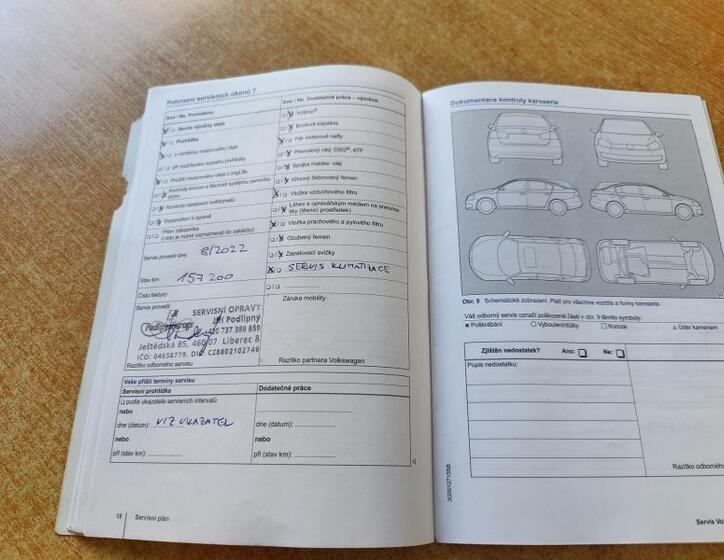 Potvrzení servisních úkonů 7
Ano / Ne Provedeno:
Servis výměny oleje
Prohlídka
s výměnou motorového oleje
při rozšířeném rozsahu prohlídky
Použití motorového oleje LongLife
Kontrola korose a těsnosti systému
plánu
Kontrola nastavení světlometů
Doporučení k opravě
Přání zákazníka
(toto je nutné zaznamenat do zakázky)
Servis proveď dne: 8/2022
Stav km: 157 200
Číslo faktury:
Servis provedl:
SERVISNÍ OPRAVY
Jiří Podlipný
+420 737 389 859
Ještědská 85, 460 07 Liberec 8
IČO: 04658779, DIČ: CZ8802102749
Razítko odborného servisu
Ano / Ne Dodatečné práce – výměna:
AdBlue®
Brzdová kapalina
Filtr motorové nafty
Převodový olej DSG®, ATF
Spojka Haldex: olej
Klínový žebrovaný řemen
Vložka vzduchového filtru
Láhev s opravářským médiem na pneuma-
tiky (těsnicí prostředek)
Vložka prachového a pylového filtru
Ozubený řemen
Zapalovací svíčky
SERVIS KLIMATIZACE
Záruka mobility:
Razítko partnera Volkswagen
Vaše příští termíny servisu
Servisní prohlídka
podle ukazatele servisních intervalů
nebo
dne (datum): VIZ UKAZATEL
nebo
při (stav km):
Dodatečné práce
dne (datum):
nebo
při (stav km):
18 Servisní plán
Dokumentace kontroly karoserie
Obr. 9 Schematické zobrazení. Platí pro všechna vozidla a formy karoserie.
Váš odborný servis označí poškozené části v obr. 9 těmito symboly:
× Poškrábání ○ Vybouleniny/důlky □ Koroze △ Úder kamenem
Zjištěn nedostatek? Ano: Ne:
Popis nedostatku:
Razítko odborného
3G0012715SB
Servis Vo